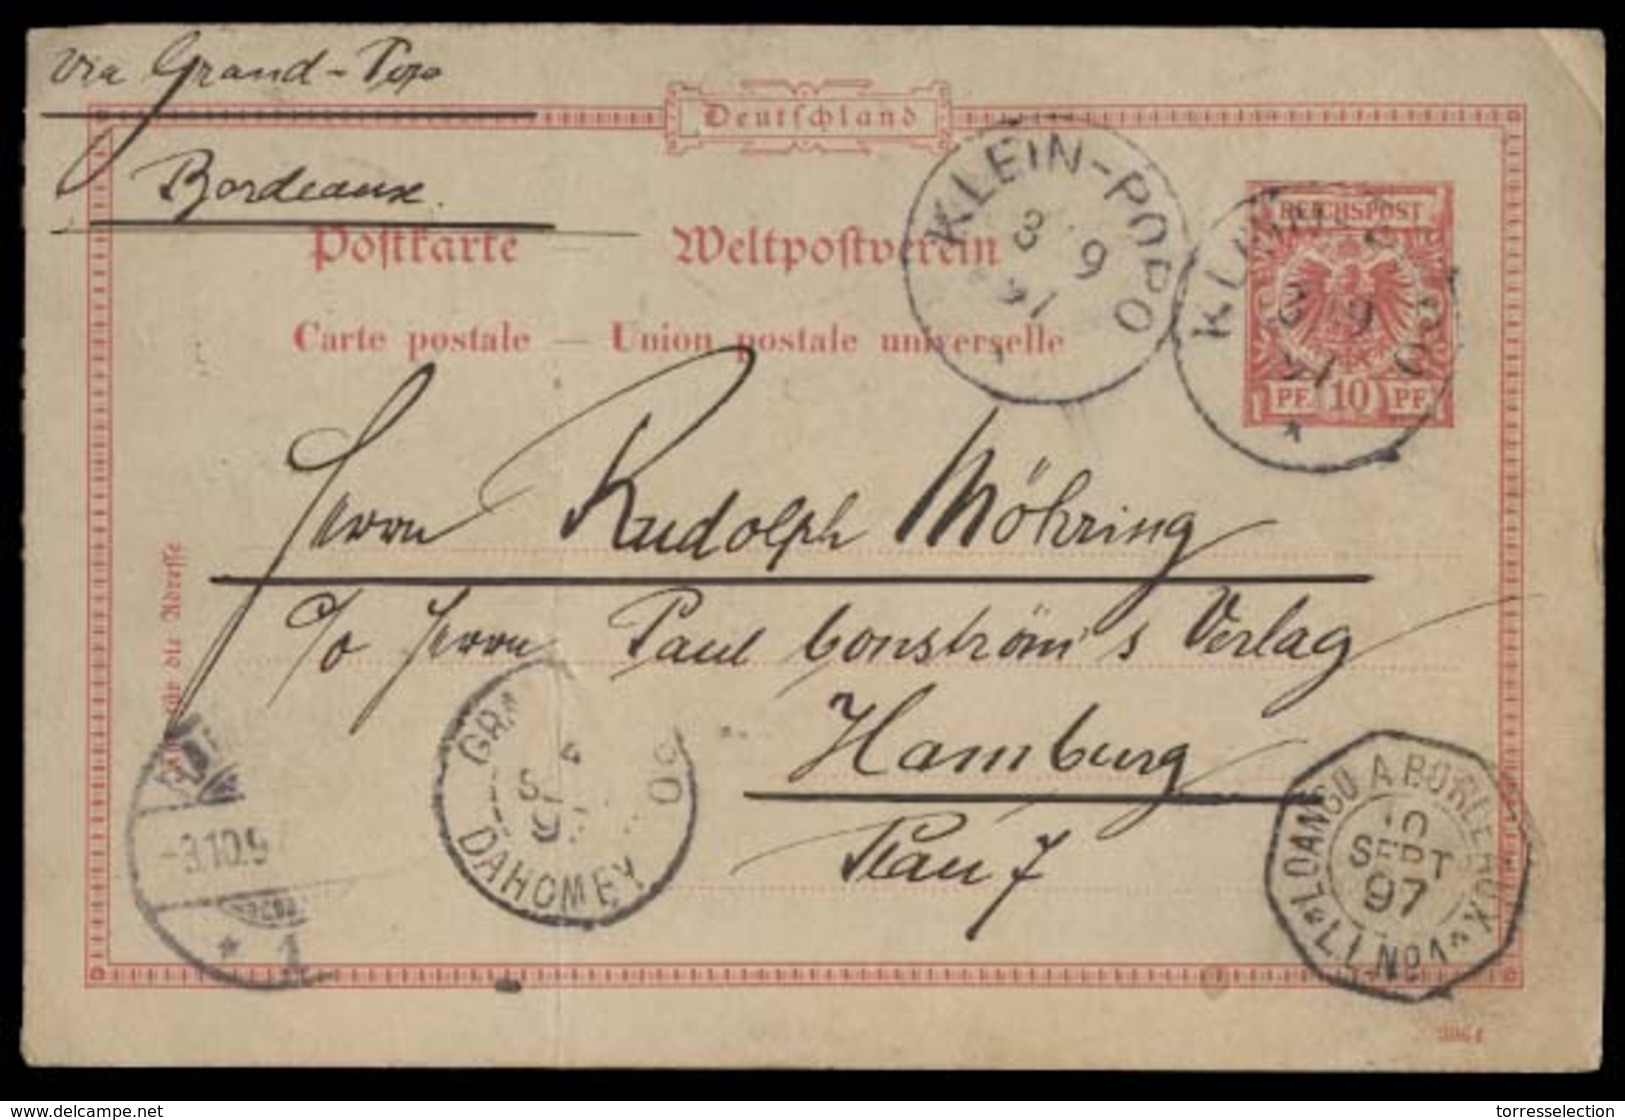 via Grand-Popo
Bordeaux.
Deutschland
Postkarte Weltpostverein
Carte postale — Union postale universelle
KLEIN-POPO
3 9
97
KLEIN-POPO
3 9
97
REICHSPOST
PF 10 PF
Herrn Rudolph Möhring
c/o Herrn Paul Conström's Verlag
Hamburg
die Adresse
GRA PO
SE
DAHOMEY
-3.10.9
* 1
LOANGO A BORDEAUX
10
SEPT
97
L.L. No 1
delcampe.net
torresselection